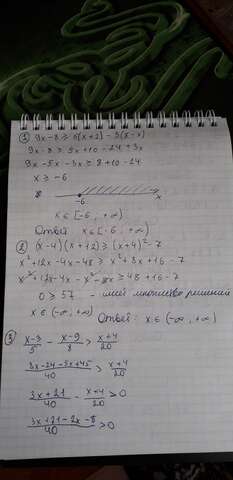 ① 9x-8 ≥ 5(x+2) - 3(8-x)
9x-8 ≥ 5x+10-24+3x
9x-5x-3x ≥ 8+10-24
x ≥ -6
-6 x
x ∈ [-6, +∞)
Ответ x ∈ [-6, +∞)
② (x-4)(x+12) ≥ (x+4)² - 7
x²+12x-4x-48 ≥ x²+8x+16-7
x²+12x-4x-x²-8x ≥ 48+16-7
0 ≥ 57 - имеет множество решений
x ∈ (-∞, +∞) Ответ: x ∈ (-∞, +∞)
③ x-3/5 - x-9/8 > x+4/20
8x-24-5x+45/40 > x+4/20
3x+21/40 - x+4/20 > 0
3x+21-2x-8/40 > 0